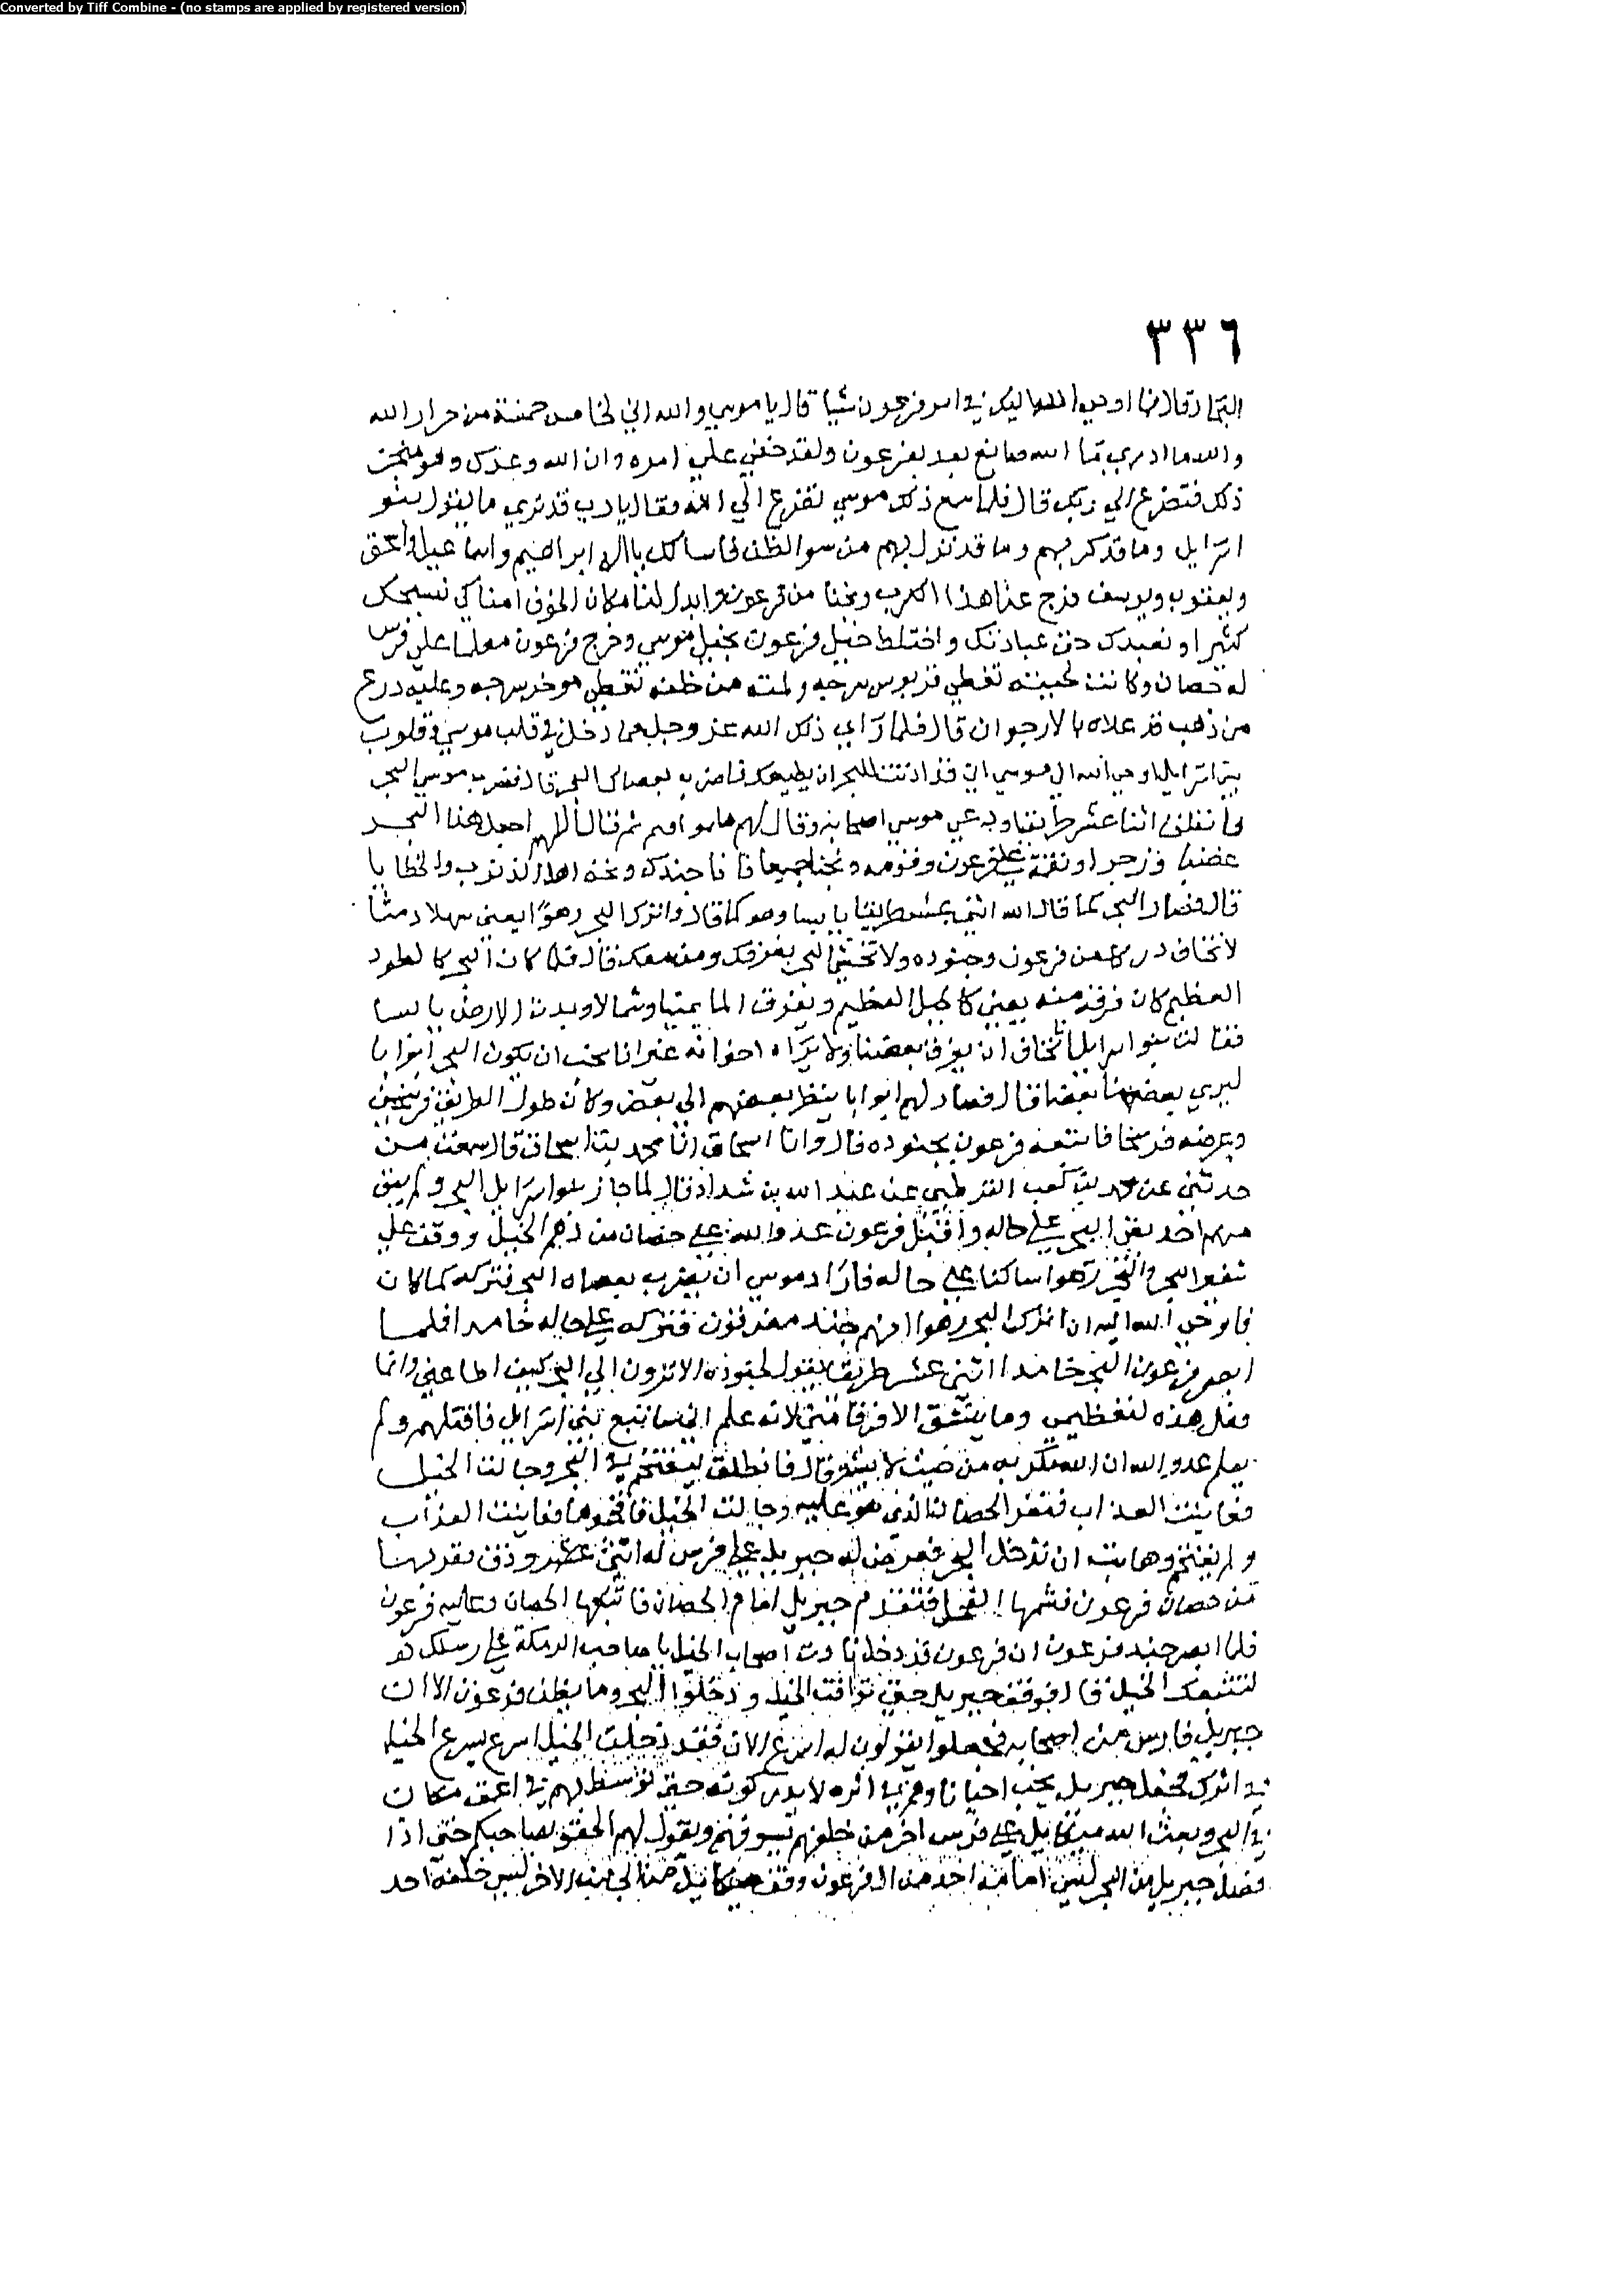 Converted by Tiff Combine - (no stamps are applied by registered version)
٣٣٦
اوحي الله اليك في امر فرعون شيا قال يا موسي والله اني لخامس خمسة من حرار الله
والله ما ادري ما الله صانع بعد بفرعون ولقد خفي علي امره وان الله وعدك وهو منجز
ذلك فتضرع الي ربك قال فلما سمع ذلك موسي تضرع الي الله فقال يا رب قد تري ما يقول بنو
اسرايل وما قد كربهم وما قد نزل بهم من سو الظن فاسالك يا اله ابراهيم واسماعيل واسحق
ويعقوب ويوسف فرج عنا هذا الكرب ونجنا من فرعون وابدل لنا مكان الخوف امنا كي نسبحك
كثيرا ونعبدك حق عبادتك واختلط خيل فرعون بخيل موسي وخرج فرعون معلما علي فرس
له حصان وكانت لحيته تغطي قربوس سرجه ولمته من خلفه تغطي موخر سرجه وعليه درع
من ذهب قد علاه بالارجوان قال فلما راي ذلك الله عز وجل مما دخل في قلب موسي وقلوب
بني اسرايل اوحي الله الي موسي اني قد اذنت للبحر ان يطيعك فاضرب بعصاك البحر قال فضرب موسي البحر
فانفلق اثنا عشر طريقا ودعي موسي اصحابه وقال لهم هلموا ثم قال اللهم اجعل هذا البحر
غضبا وزجرا ونقمة علي فرعون وقومه ونجنا جميعا فانا جندك ونحن اهل الذنوب والخطايا
قال فصار البحر كما قال الله اثني عشر طريقا يابسا وهو كما قال واترك البحر رهوا يعني سهلا دمثا
لا تخاف دركا من فرعون وجنوده ولا تخشي البحر يغرقك ومن معك قال فلما كان البحر كالطود
العظيم كان فرقه منه يعني كالجبل العظيم وتفرق الما يمينا وشمالا وبدت الارض يابسا
فقالت بنو اسرايل انا نخاف ان يغرق بعضنا ولا يراه اخوانه غير انا نحب ان يكون البحر ابوابا
ليري بعضنا بعضا قال فصار لهم ابوابا ينظر بعضهم الي بعض وكان طول الطريق فرسخين
وعرضه فرسخا فاتبعه فرعون بجنوده قال وانا اسحاق انا محمد بن اسحاق قال سمعت من
حدثني عن محمد بن كعب القرظي عن عبد الله بن شداد قال لما جاز بنو اسرايل البحر ولم يبق
منهم احد بقي البحر علي حاله واقبل فرعون عدو الله علي حصان من دهم الخيل ووقف علي
شفير البحر والبحر رهوا ساكنا علي حاله فاراد موسي ان يضرب بعصاه البحر فتركه كما كان
فاوحي الله اليه ان اترك البحر رهوا انهم جند مغرقون فتركه علي حاله جامدا فلما
ابصر فرعون البحر جامدا اثني عشر طريقا يقول لجنوده الا ترون الي البحر كيف اطاعني وانما
فعل هذه لتعظيمي وما ينشق الا فرقا مني لانه علم اني ساتبع بني اسرايل فاقتلهم ولم
يعلم عدو الله ان الله مكر به من حيث لا يشعر قال فانطلق ليقتحم في البحر وجالت الخيل
فعاينت العذاب فنفر الحصان الذي هو عليه وجالت الخيل فعاينت العذاب
ولم تقتحم وهابت ان تدخل البحر فعرض له جبريل علي فرس له انثي فقربها
من حصان فرعون فشمها الفحل فتقدم جبريل امام الحصان فاتبعها الحصان وعليه فرعون
فلما ابصر جند فرعون ان فرعون قد دخل نادت اصحاب الخيل يا صاحب الرمكة علي رسلك
لتتبعك الخيل قال فوقف جبريل حتي توافت الخيل ودخلوا البحر وما يظن فرعون الا ان
جبريل فارس من اصحابه فجعلوا يقولون له اسرع الان فقد دخلت الخيل اسرع يسرع الخيل
في اثرك فجعل جبريل يخب احيانا وهم في اثره لا يدركونه حتي توسط بهم في اعمق مكان
في البحر وبعث الله ميكاييل علي فرس اخر من خلفهم يسوقهم ويقول لهم الحقوا بصاحبكم حتي اذا
فصل جبريل من البحر ليس امامه احد من ال فرعون وقف ميكاييل من الجانب الاخر ليس خلفه احد